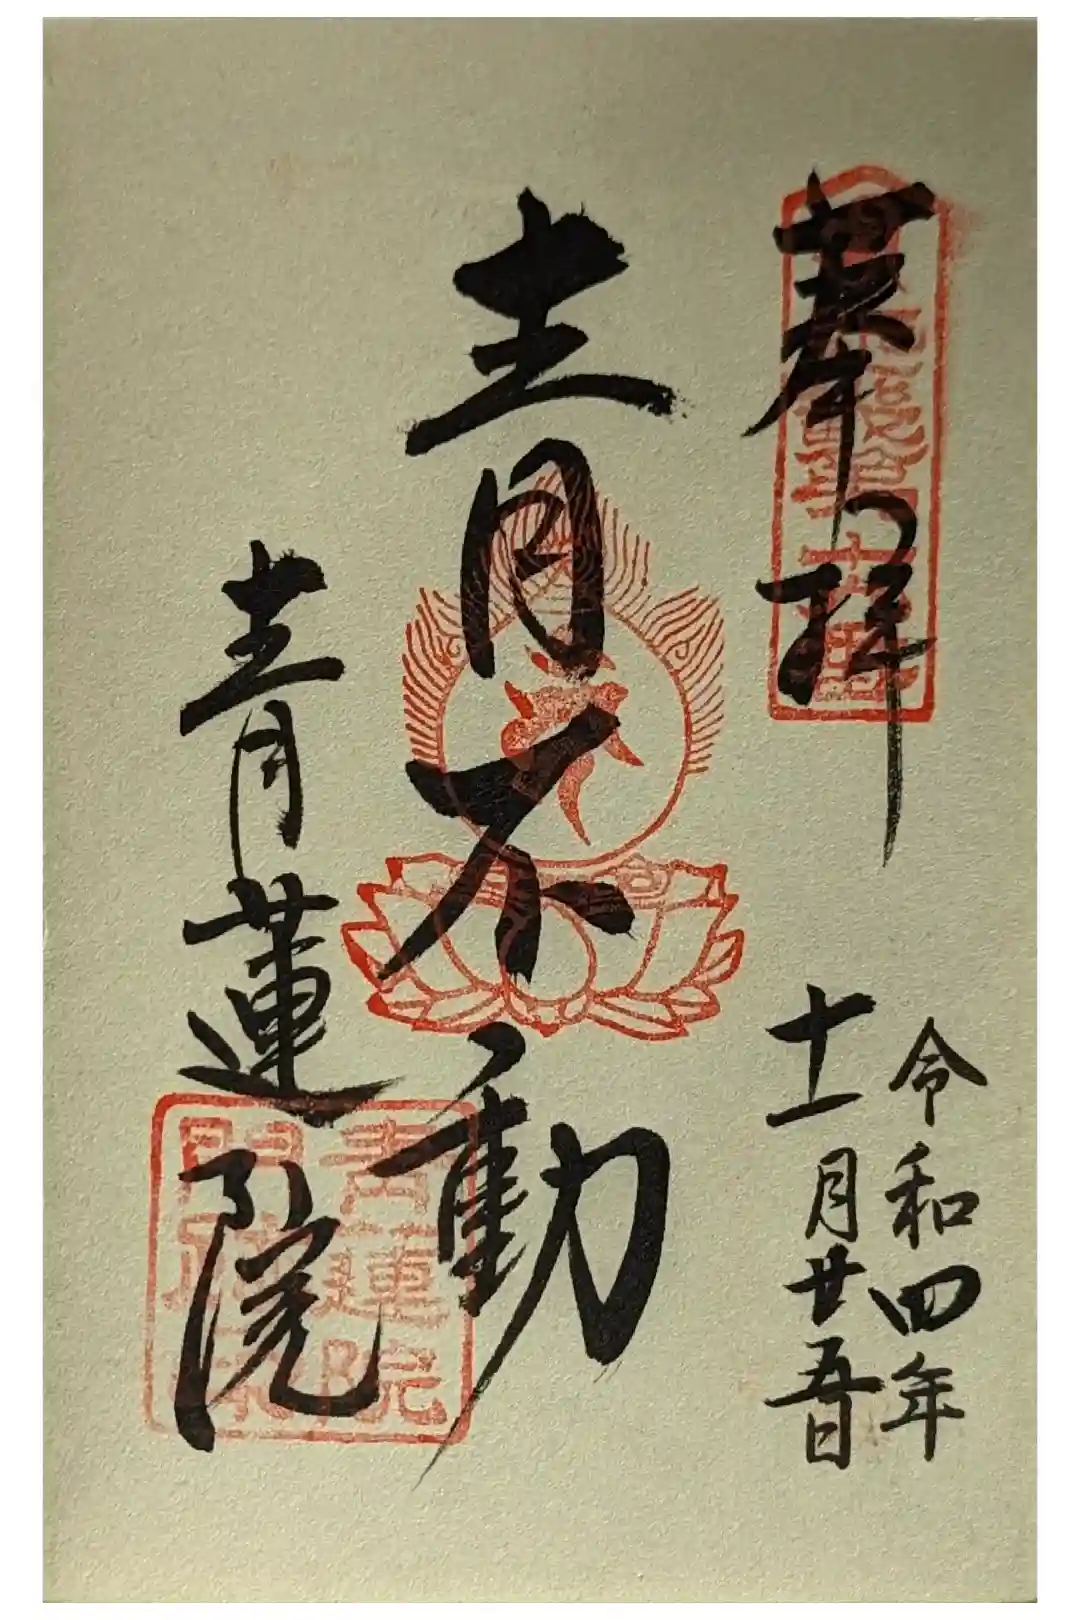 奉拝
令和四年
十一月廿五日
青不動
青蓮院
青蓮院
門跡